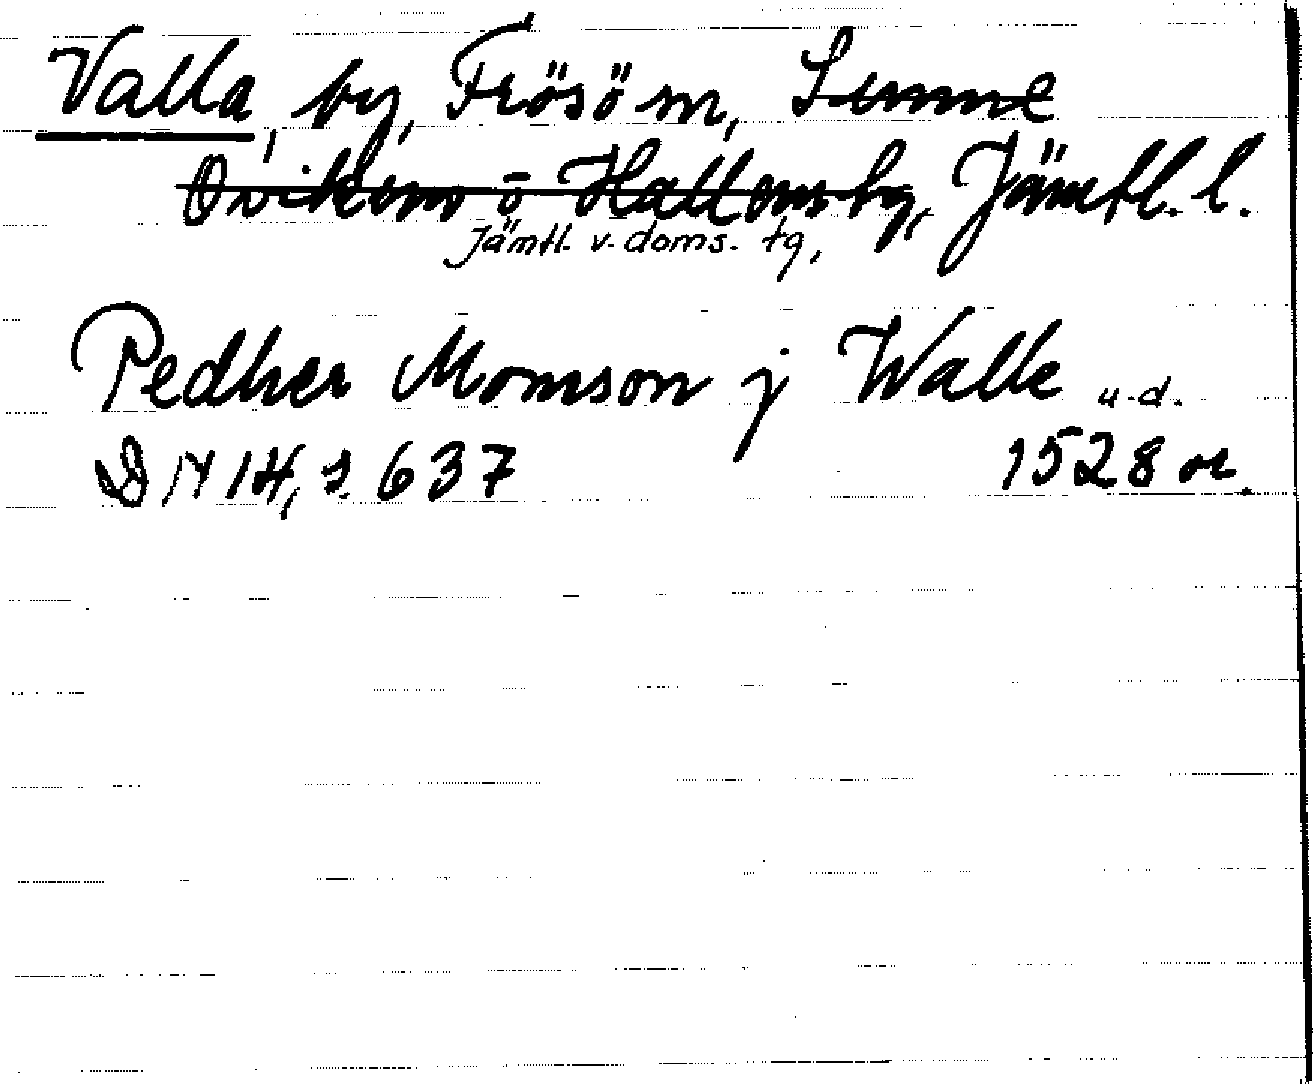 Valla, by, Frösö sn, Sunne
Ovikens o Hallens tg, Jämtl. l.
Jämtl. v. doms. tg,
Pedher Momson j Walle u.d.
DN 14, s. 637 1528 or.